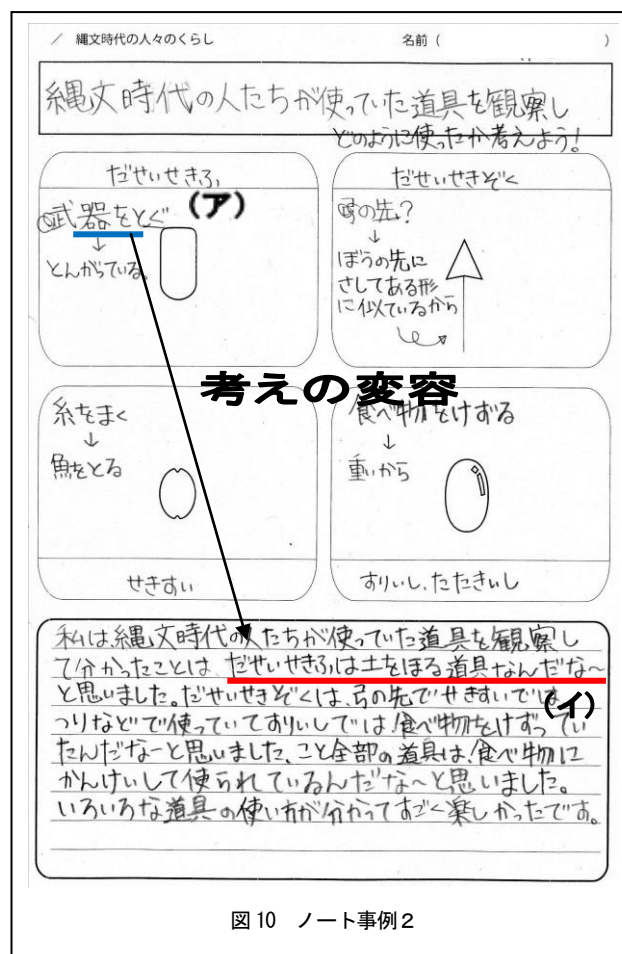 / 縄文時代の人々のくらし 名前( )
縄文時代の人たちが使っていた道具を観察し
どのように使ったか考えよう!
だせいせきふ
武器をとぐ (ア)
↓
とんがっている。
だせいせきぞく
弓の先?
↓
ぼうの先に
さしてある形
に似ているから
考えの変容
糸をまく
↓
魚をとる
せきすい
食べ物をけずる
↓
重いから
すりいし、たたきいし
私は、縄文時代の人たちが使っていた道具を観察し
て分かったことは、だせいせきふは土をほる道具なんだな〜
と思いました。だせいせきぞくは、弓の先でせきすいでは、
(イ)
つりなどで使っていてすりいしでは、食べ物をけずってい
たんだなーと思いました、こと全部の道具は、食べ物に
かんけいして使られているんだな〜と思いました。
いろいろな道具の使い方が分かってすごく楽しかったです。
図10 ノート事例2